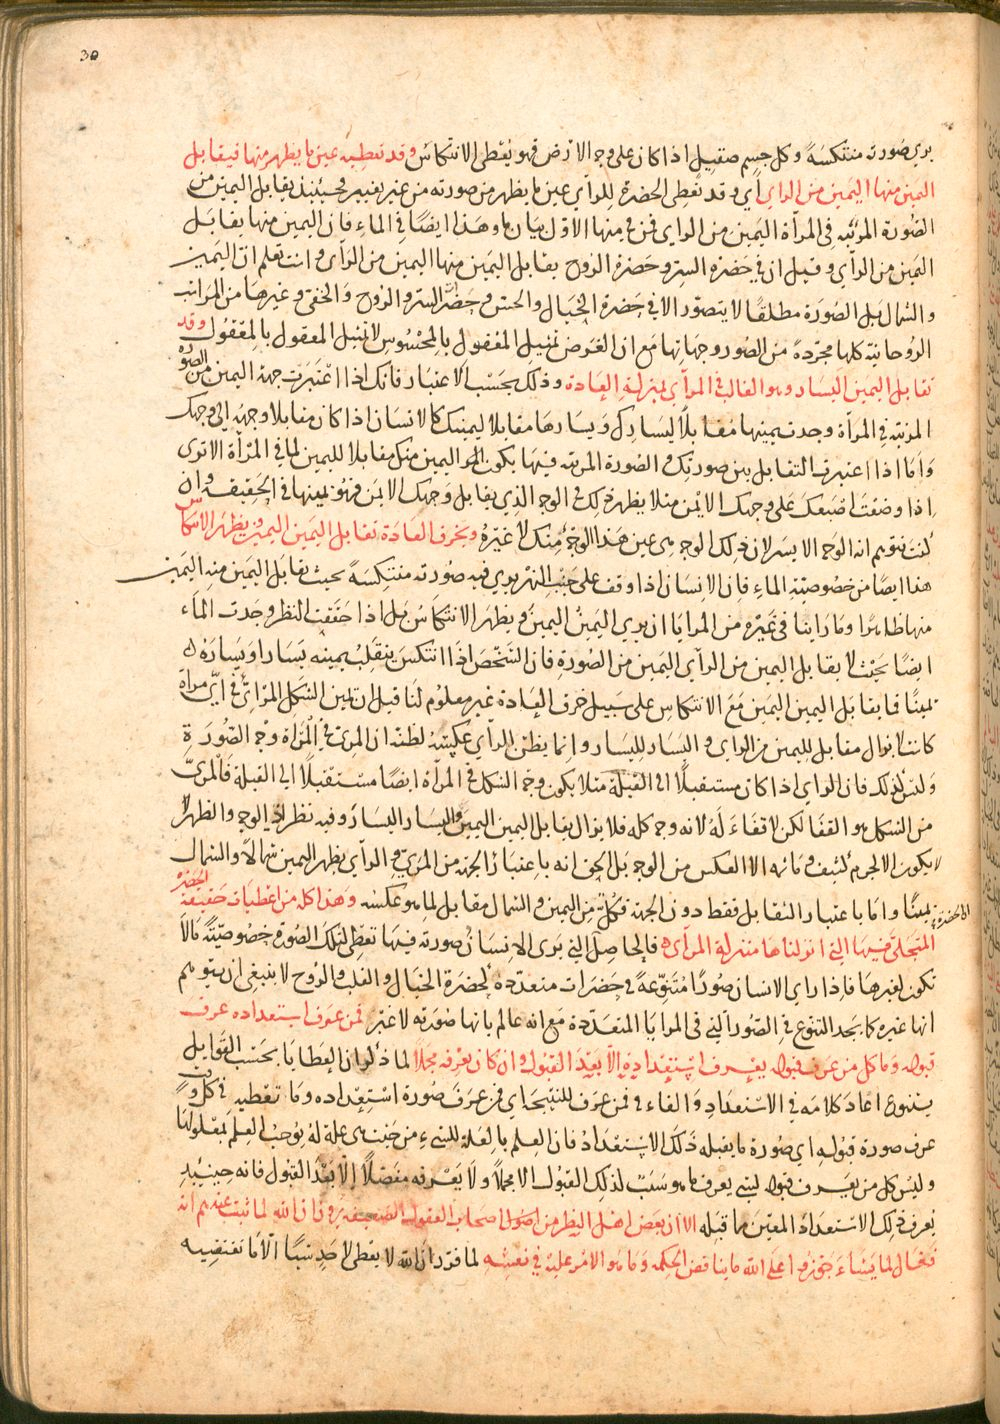 30
يرى صورته منتكسة وكل جسم صقيل اذا كان على وجه الارض فهو يعطى الانتكاس وقد تعطيه عين ما يظهر منها فيقابل
اليمين منها اليمين من الرائي اي وقد تعطى الحضرة للرآي عين ما يظهر من صورته من غير تغيير وحينئذ يقابل اليمين من
الصورة المرئيه في المرآة اليمين من الراي فمن في منها الاول بيان ما وهذا ايضا في الماء فان اليمين منها يقابل
اليمين من الرآي وقيل ان في حضرة السر وحضرة الروح يقابل اليمين منها اليمين من الرآي وانت تعلم ان اليمين
والشمال بل الصورة مطلقا لا يتصور الا في حضرة الخيال والحس وحضرة السر والروح والخفى وغيرها من المراتب
الروحانية كلها مجردة من الصور وجهاتها مع ان الغرض تمثيل المعقول بالمحسوس لا تمثيل المعقول بالمعقول وقد
تقابل اليمين اليسار وهو الغالب في المرآى بمنزلة العادة وذلك بحسب الاعتبار فانك اذا اعتبرت جهة اليمين من الصورة
المرئيه في المرآة وجدت يمينها مقابلا ليسارك ويسارها مقابلا ليمينك كالانسان اذا كان مقابلا وجهه الى وجهك
واما اذا اعتبرت التقابل بين صورتك والصورة المرئيه فيها يكون اليمين منك مقابلا لليمين لما في المرآة الا ترى
اذا وضعت اصبعك على وجهك الايمن مثلا يظهر ذلك في الوجه الذي يقابل وجهك الايمن فهو يمينها في الحقيقة وان
كنت تتوهم انه الوجه الايسر لان ذلك الوجه هى عين هذا الوجه منك لا غيره وبخرق العادة تقابل اليمين اليمين ويظهر الانتكاس
هذا ايضا من خصوصية الماء فان الانسان اذا وقف على جنب النهر يرى فيه صورته منتكسة بحيث يقابل اليمين منه اليمين
منها ظاهرا وما راينا في غيره من المرايا ان يرى اليمين اليمين ويظهر الانتكاس بل اذا حققت النظر وجدت الماء
ايضا بحيث لا يقابل اليمين من الرآي اليمين من الصورة فان الشخص اذا انتكس ينقلب يمينه يسارا ويساره
يمينا فا يقابل اليمين اليمين مع الانتكاس على سبيل خرق العادة غير معلوم لنا قيل ان يمين الشكل المرائي في اي مرآة
كانت لا يزال مقابل لليمين من الراي واليسار لليسار وانما يظن الرآي عكسه لظنه ان المرئ في المرآة وجه الصورة
وليس كذلك فان الراي اذا كان مستقبلا الى القبلة مثلا يكون وجه الشكل في المرآة ايضا مستقبلا الى القبلة فالمرئ
من الشكل هو القفا لكن لا قفاء له لانه وجه كله فلا يزال يقابل اليمين اليمين واليسار اليسار وفيه نظر اذ الوجه والظهر
لا يكون الا لجرم كثيف وما ثم الا العكس من الوجه بل الحق انه باعتبار الجهة من المرئ والرآي يظهر اليمين شمالا والشمال
يمينا واما باعتبار التقابل فقط دون الجهة فكل من اليمين والشمال مقابل لما هو عكسه وهذا كله من اعطيات حقيقة الحضرة
المتجلى فيها التي انزلناها منزلة المرآى فالحاصل التي يرى الانسان صورته فيها تعطى لتلك الصورة خصوصية مالا
تكون لغيرها فاذا راى الانسان صورا متنوعة في حضرات متعددة كحضرة الخيال والقلب والروح لا ينبغى ان يتوهم
انها غيره كما يجد التنوع في الصور التى فى المرايا المتعددة مع انه عالم بانها صورته لا غير فمن عرف استعداده عرف
قبوله وما كل من عرف قبوله يعرف استعداده الا بعد القبول وان كان يعرفه مجملا لما ذكر ان العطايا بحسب القوابل
يتنوع اعاد كلامه في الاستعداد والفاء في فمن عرف للنتيجة اي فمن عرف صورة استعداده وما تعطيه في كل وقت
عرف صورة قبوله اي صورة ما يقبله ذلك الاستعداد فان العلم بالعلة للشيء من حيث هى علة له يوجب العلم بمعلولها
وليس كل من يعرف قبوله لشيء يعرف ما هو سبب لذلك القبول الا مجملا ولا يعرفه مفصلا الا بعد القبول فانه حينئذ
يعرف ذلك الاستعداد المعين مما قبله الا ان بعض اهل النظر من اصحاب العقول الضعيفه يرون ان الله لما ثبت عندهم انه
فعال لما يشاء جوزوا على الله ما يناقض الحكمة وما هو الامر عليه في نفسه لما قرر ان الله لا يعطى لاحد شيئا الا ما تقتضيه